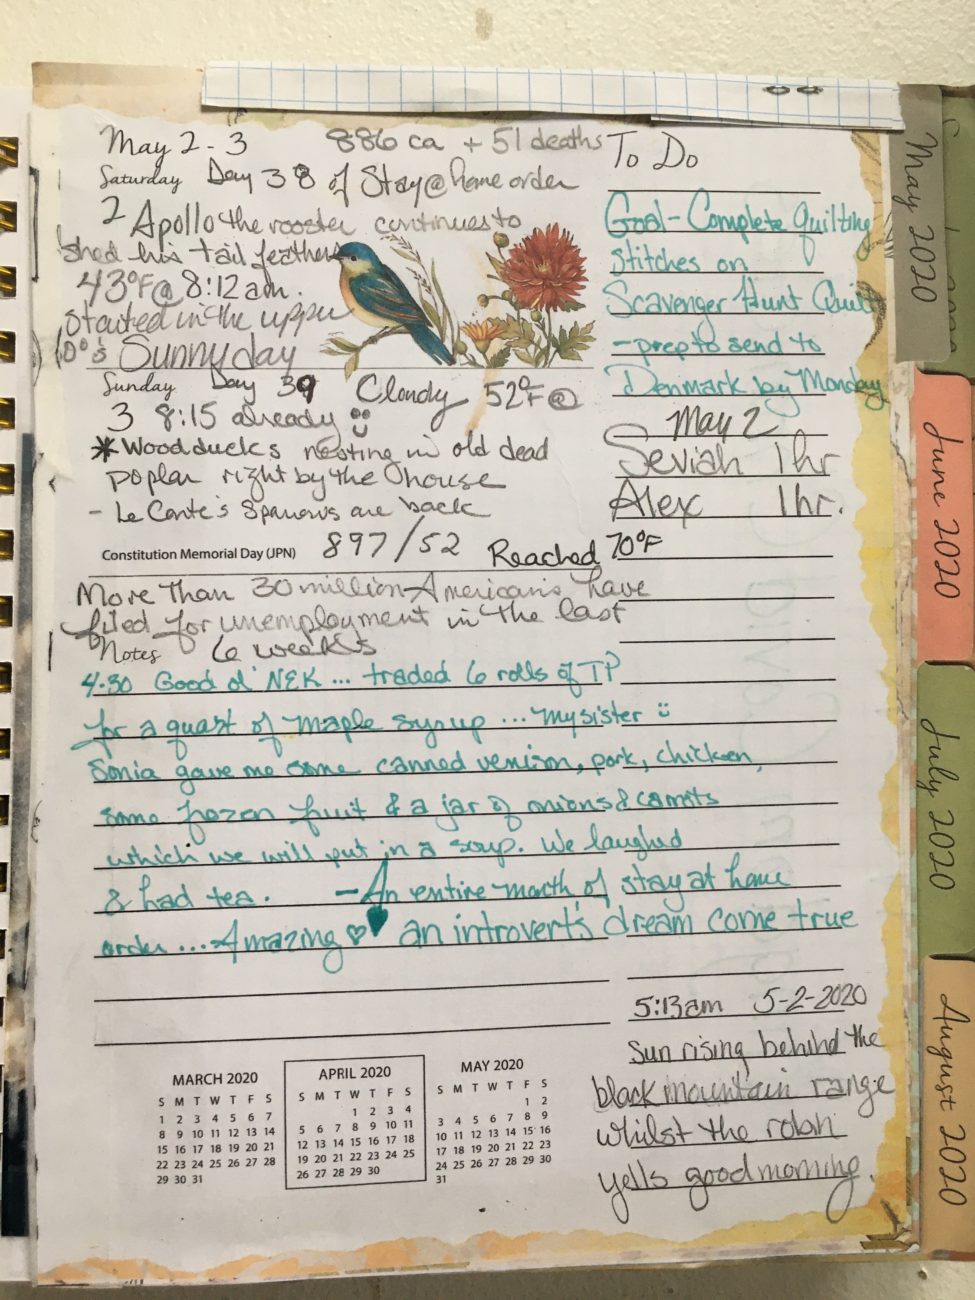 May 2-3 886 ca + 51 deaths
Saturday Day 38 of Stay@home order
2 Apollo the rooster continues to
shed his tail feathers
43°F@ 8:12am.
started in the upper
0°s Sunny day
Sunday Day 39 Cloudy 52°F @
3 8:15 already
*Woodducks nesting in old dead
poplar right by the house
- Le Conte's Sparrows are back
Constitution Memorial Day (JPN) 897/52 Reached 70°F
More Than 30 million Americans have
filed for unemployment in the last
Notes 6 weeks
4:30 Good ol' NEK ... traded 6 rolls of TP
for a quart of maple syrup ... my sister
Sonia gave me some canned venison, pork, chicken,
some frozen fruit & a jar of onions & carrots
which we will put in a soup. We laughed
& had tea. - An entire month of stay at home
order ... Amazing an introvert's dream come true
To Do
Goal - Complete Quilting
stitches on
Scavenger Hunt Quilt
- prep to send to
Denmark by Monday
May 2
Seviah 1 hr
Alex 1 hr.
5:13am 5-2-2020
Sun rising behind the
black mountain range
whilst the robin
yells good morning.
MARCH 2020
S M T W T F S
1 2 3 4 5 6 7
8 9 10 11 12 13 14
15 16 17 18 19 20 21
22 23 24 25 26 27 28
29 30 31
APRIL 2020
S M T W T F S
1 2 3 4
5 6 7 8 9 10 11
12 13 14 15 16 17 18
19 20 21 22 23 24 25
26 27 28 29 30
MAY 2020
S M T W T F S
1 2
3 4 5 6 7 8 9
10 11 12 13 14 15 16
17 18 19 20 21 22 23
24 25 26 27 28 29 30
31
May 2020
June 2020
July 2020
August 2020